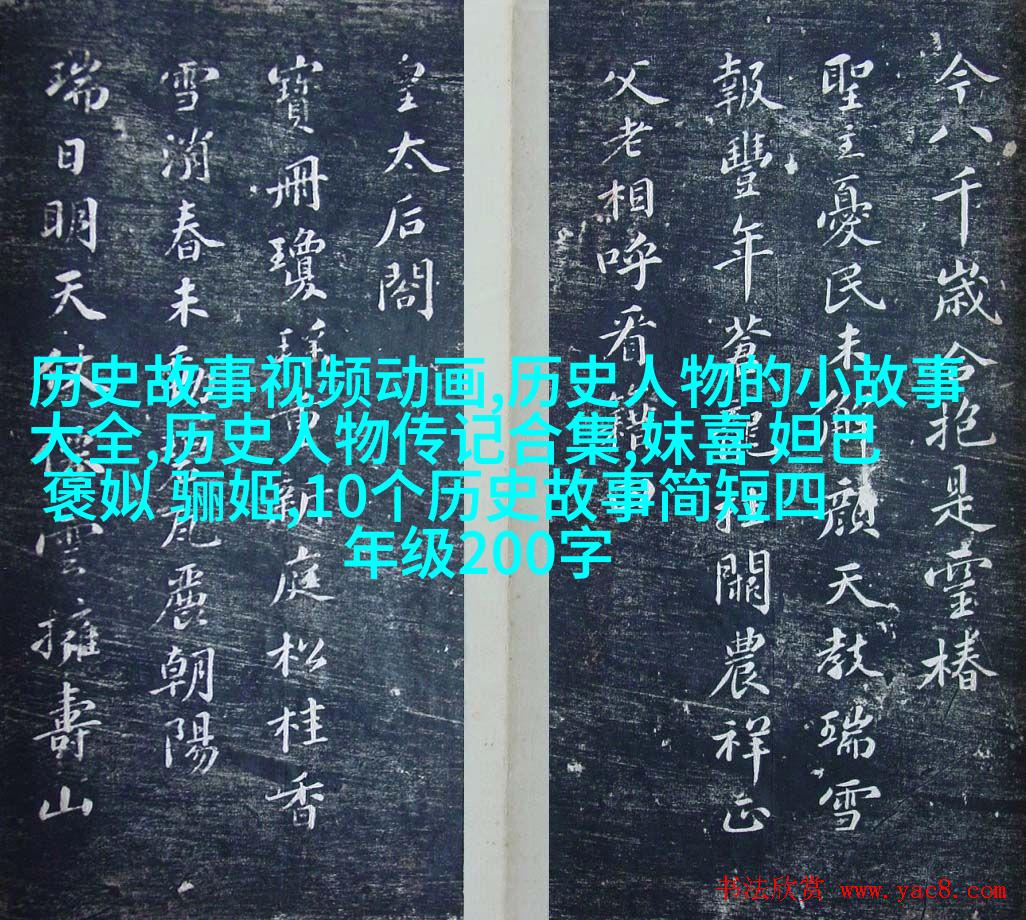 今八千歲合抱是靈椿
聖主憂民未解顏天教瑞雪
報豐年蒼龍挂闕農祥正
父老相呼看藉
皇太后閤
寶冊瓊瑤新庭松桂香
雪消春未動瓦麗朝陽
瑞日明天仗雲擁壽山
历史故事视频动画,历史人物的小故事
大全,历史人物传记合集,妺喜 妲己
褒姒 骊姬,10个历史故事简短四
年级200字
书法欣赏 www.yac8.com